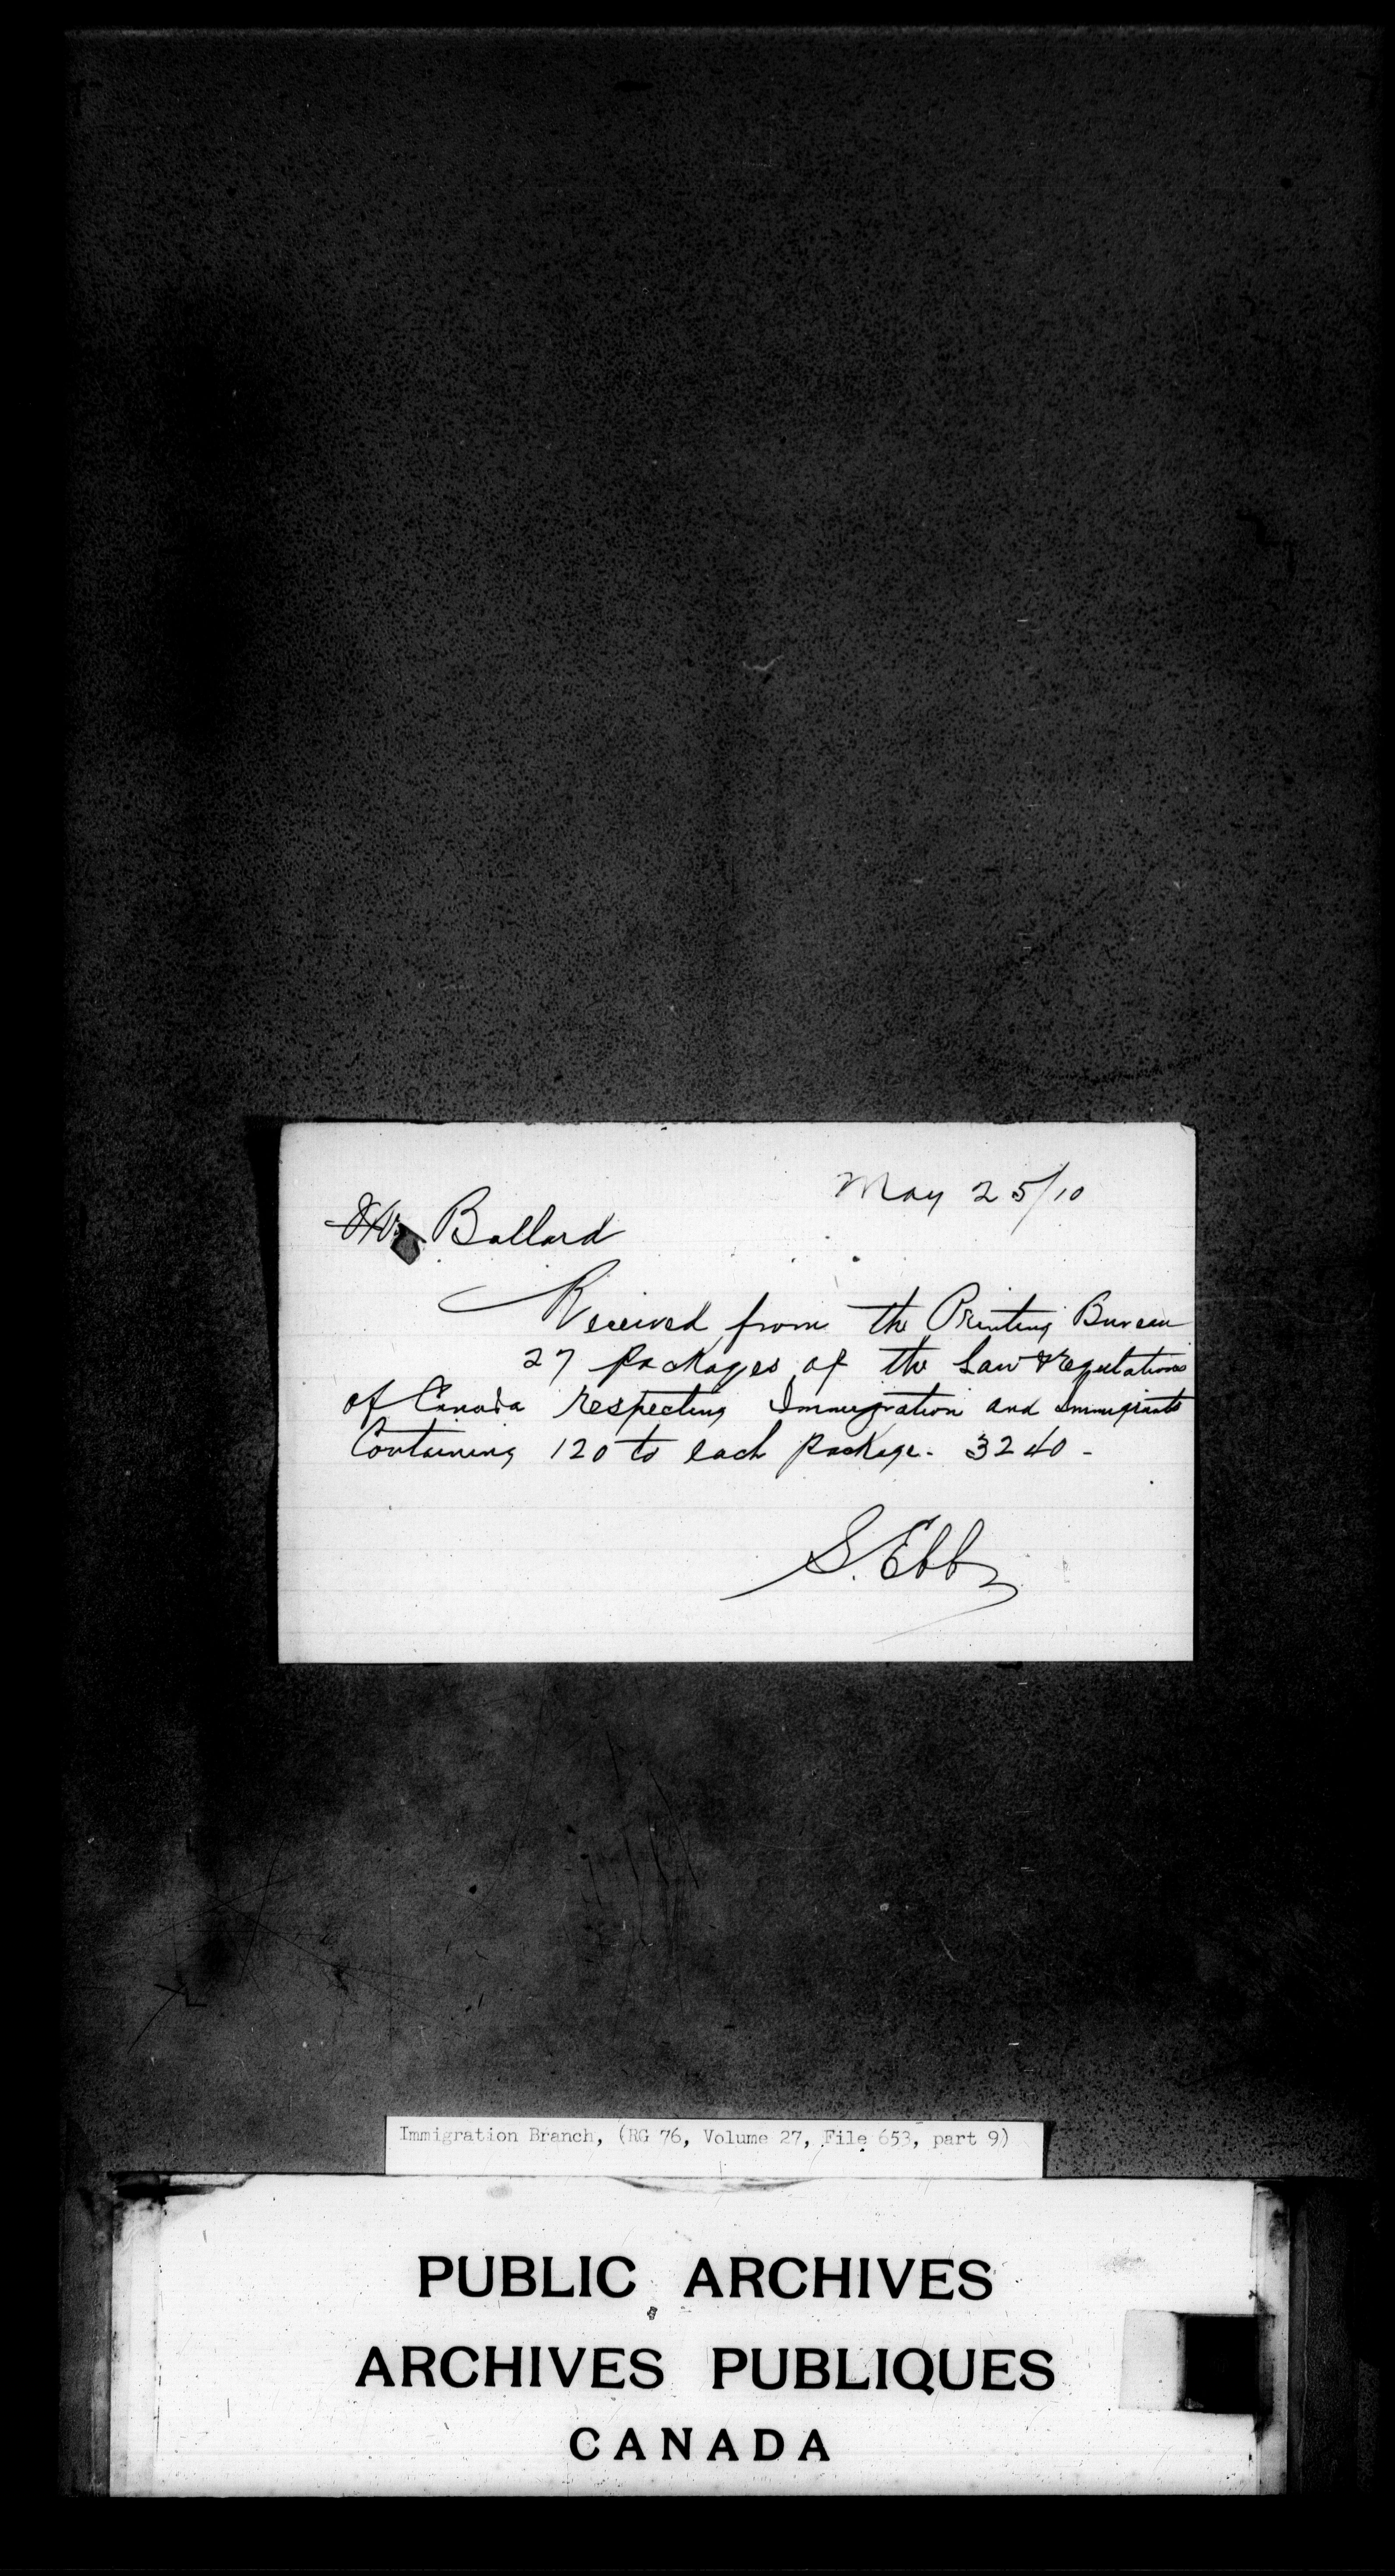 May 25/10
Ballard
Received from the Printing Bureau
27 packages of the Law & regulations
of Canada respecting Immigration and Immigrants
Containing 120 to each package. 3240 -
S. Ebbs
Immigration Branch, (RG 76, Volume 27, File 653, part 9)
PUBLIC ARCHIVES
ARCHIVES PUBLIQUES
CANADA